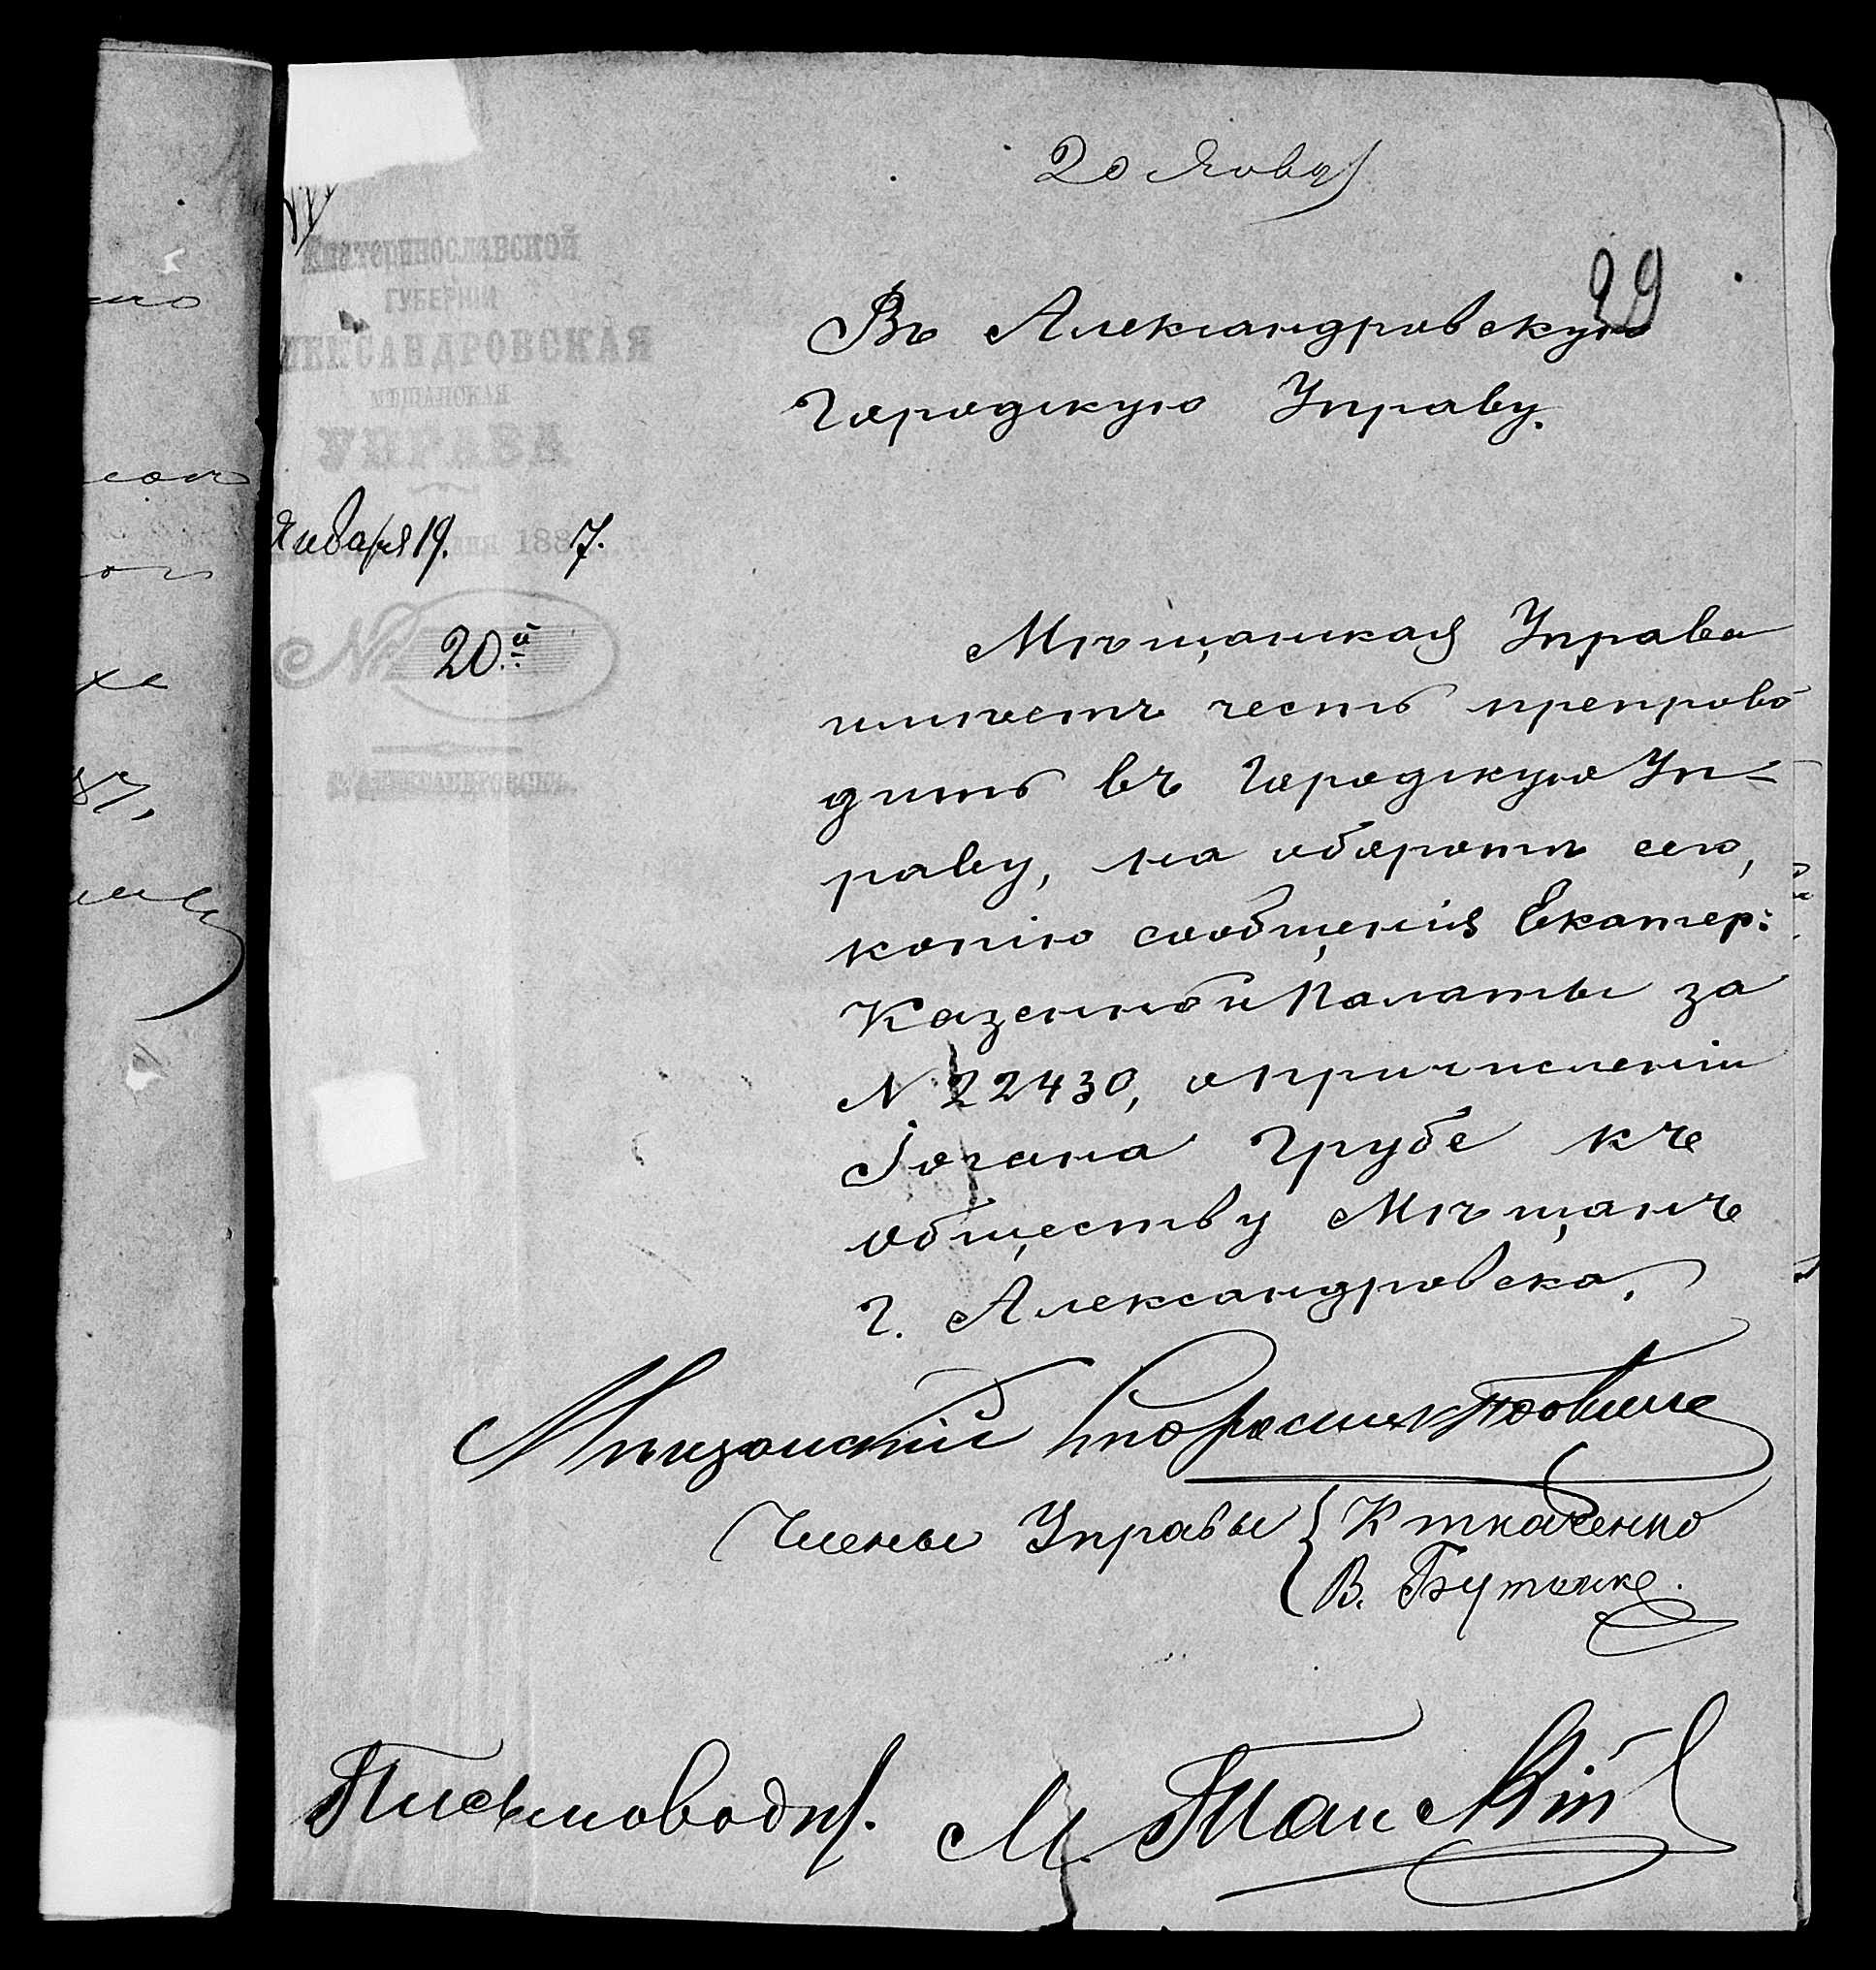 20 Янва
29
Екатеринославской
ГУБЕРНІИ
АЛЕКСАНДРОВСКАЯ
МѢЩАНСКАЯ
УПРАВА
Января 19. дня 1887. г.
№ 20.й
г. АЛЕКСАНДРОВСКЪ.
Въ Александровскую
Городскую Управу.
Мѣщанская Управа
имѣетъ честь препрово
дить въ Городскую Уп-
раву, на оборотѣ сего,
копію сообщенія Екатер:
Казенной Палаты за
№ 22430, о причисленіи
Іогана Грубе къ
обществу Мѣщанъ
г. Александровска.
Мѣщанскій
Члены Управы { К Ткаченко
В. Бутенко.
Письмовод.
М.
87,